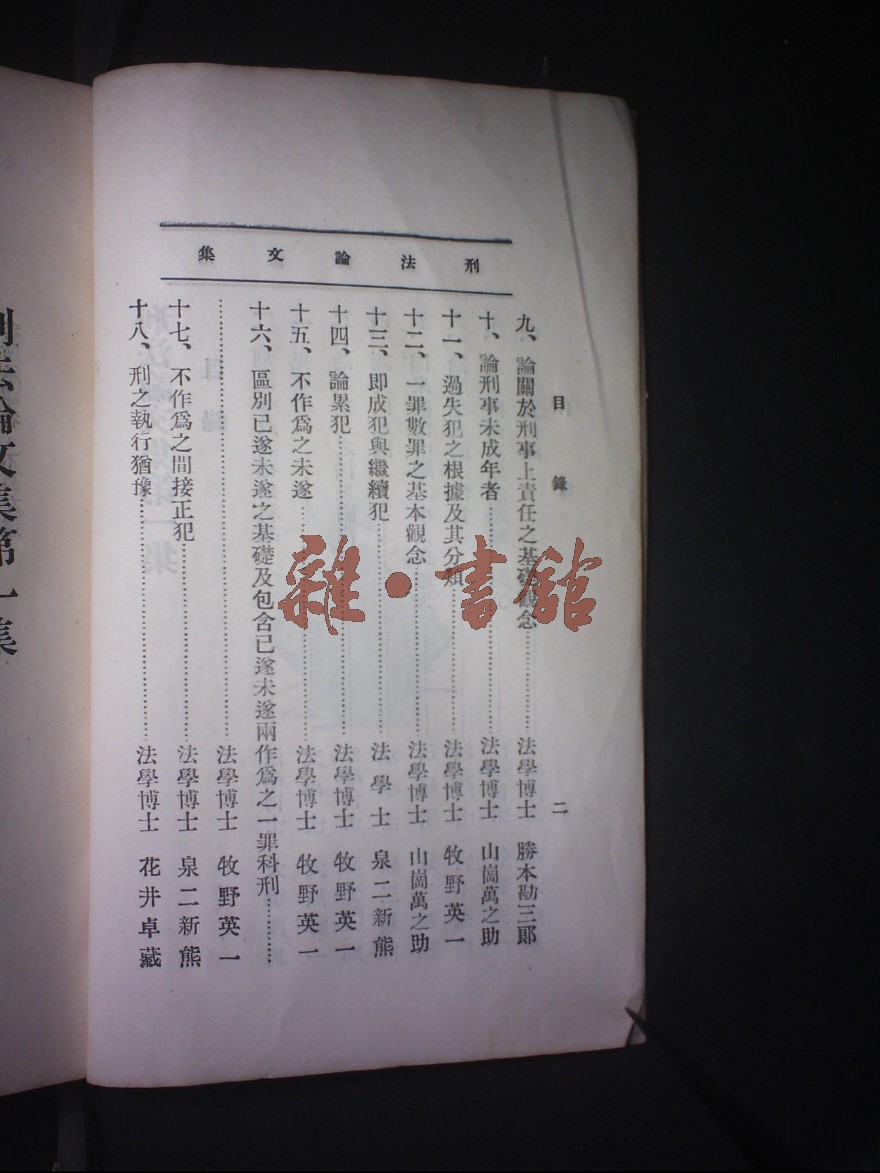 刑法論文集
目錄 二
九、論關於刑事上責任之基礎觀念……………法學博士 勝本勘三郎
十、論刑事未成年者……………法學博士 山崗萬之助
十一、過失犯之根據及其分類……………法學博士 牧野英一
十二、一罪數罪之基本觀念……………法學博士 山崗萬之助
十三、即成犯與繼續犯……………法學士 泉二新熊
十四、論累犯……………法學博士 牧野英一
十五、不作爲之未遂……………法學博士 牧野英一
十六、區別已遂未遂之基礎及包含已遂未遂兩作爲之一罪科刑…………
……………法學博士 牧野英一
十七、不作爲之間接正犯……………法學博士 泉二新熊
十八、刑之執行猶豫……………法學博士 花井卓藏
刑法論文集第一集
雜·書館